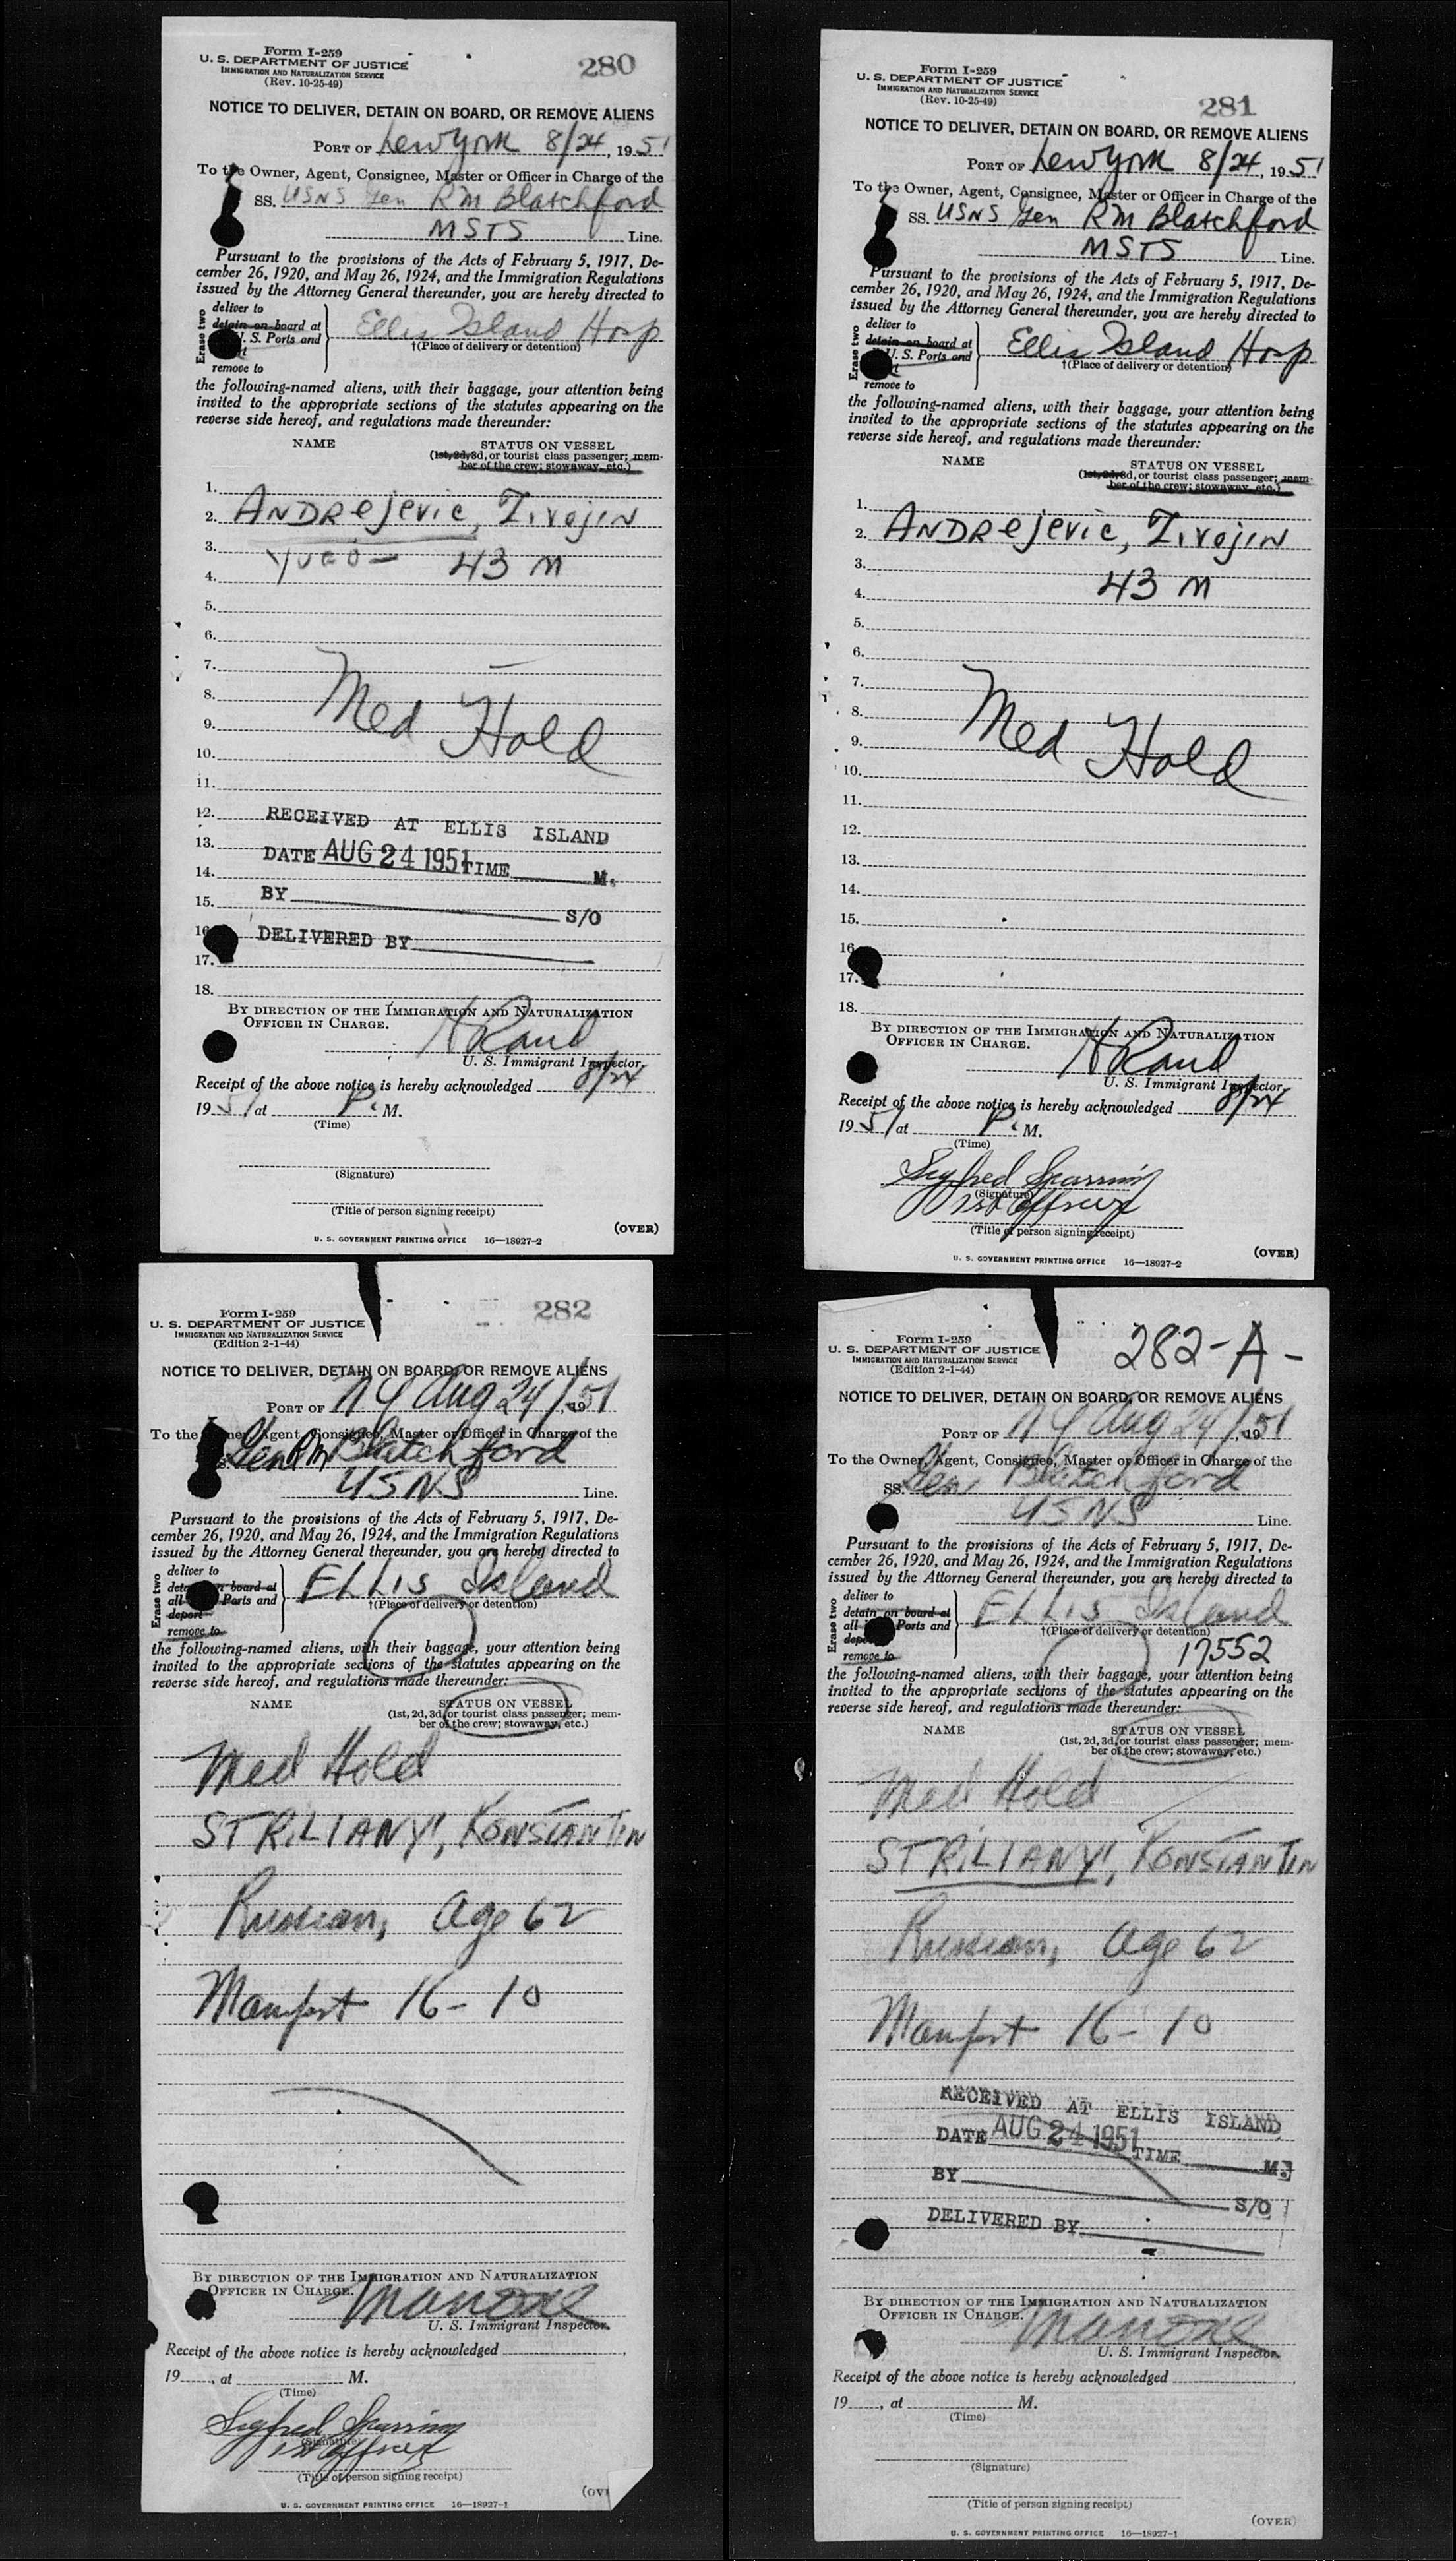 Form I-259
U. S. DEPARTMENT OF JUSTICE
IMMIGRATION AND NATURALIZATION SERVICE
(Rev. 10-25-49)
280
NOTICE TO DELIVER, DETAIN ON BOARD, OR REMOVE ALIENS
PORT OF New York 8/24, 1951
To the Owner, Agent, Consignee, Master or Officer in Charge of the
SS. USNS Gen RM Blatchford
MSTS Line.
Pursuant to the provisions of the Acts of February 5, 1917, De-
cember 26, 1920, and May 26, 1924, and the Immigration Regulations
issued by the Attorney General thereunder, you are hereby directed to
Erase two
deliver to
detain on board at
U. S. Ports and
remove to
Ellis Island Hosp
†(Place of delivery or detention)
the following-named aliens, with their baggage, your attention being
invited to the appropriate sections of the statutes appearing on the
reverse side hereof, and regulations made thereunder:
NAME STATUS ON VESSEL
(1st, 2d, 3d, or tourist class passenger; mem-
ber of the crew; stowaway, etc.)
1.
2. ANDREjevic, Zivojin
3. YUGO - 43 M
4.
5.
6.
7.
8. Med Hold
9.
10.
11.
12. RECEIVED AT ELLIS ISLAND
13. DATE AUG 24 1951 TIME M.
14.
15. BY S/O
16. DELIVERED BY
17.
18.
BY DIRECTION OF THE IMMIGRATION AND NATURALIZATION
OFFICER IN CHARGE.
H Rand
U. S. Immigrant Inspector.
Receipt of the above notice is hereby acknowledged 8/24
1951 at P. M.
(Time)
(Signature)
(Title of person signing receipt)
(OVER)
U. S. GOVERNMENT PRINTING OFFICE 16—18927-2
Form I-259
U. S. DEPARTMENT OF JUSTICE
IMMIGRATION AND NATURALIZATION SERVICE
(Rev. 10-25-49)
281
NOTICE TO DELIVER, DETAIN ON BOARD, OR REMOVE ALIENS
PORT OF New York 8/24, 1951
To the Owner, Agent, Consignee, Master or Officer in Charge of the
SS. USNS Gen RM Blatchford
MSTS Line.
Pursuant to the provisions of the Acts of February 5, 1917, De-
cember 26, 1920, and May 26, 1924, and the Immigration Regulations
issued by the Attorney General thereunder, you are hereby directed to
Erase two
deliver to
detain on board at
U. S. Ports and
remove to
Ellis Island Hosp
†(Place of delivery or detention)
the following-named aliens, with their baggage, your attention being
invited to the appropriate sections of the statutes appearing on the
reverse side hereof, and regulations made thereunder:
NAME STATUS ON VESSEL
(1st, 2d, 3d, or tourist class passenger; mem-
ber of the crew; stowaway, etc.)
1.
2. ANDREjevic, Zivojin
3.
4. 43 M
5.
6.
7.
8. Med Hold
9.
10.
11.
12.
13.
14.
15.
16.
17.
18.
BY DIRECTION OF THE IMMIGRATION AND NATURALIZATION
OFFICER IN CHARGE.
H Rand
U. S. Immigrant Inspector.
Receipt of the above notice is hereby acknowledged 8/24
1951 at P. M.
(Time)
Sigfred Sparring
(Signature)
1st Officer
(Title of person signing receipt)
(OVER)
U. S. GOVERNMENT PRINTING OFFICE 16—18927-2
Form I-259
U. S. DEPARTMENT OF JUSTICE
IMMIGRATION AND NATURALIZATION SERVICE
(Edition 2-1-44)
282
NOTICE TO DELIVER, DETAIN ON BOARD, OR REMOVE ALIENS
PORT OF NY Aug 24/, 1951
To the Owner, Agent, Consignee, Master or Officer in Charge of the
Gen RM Blatchford
USNS Line.
Pursuant to the provisions of the Acts of February 5, 1917, De-
cember 26, 1920, and May 26, 1924, and the Immigration Regulations
issued by the Attorney General thereunder, you are hereby directed to
Erase two
deliver to
detain on board at
all Ports and
deport
remove to
ELLIS Island
†(Place of delivery or detention)
the following-named aliens, with their baggage, your attention being
invited to the appropriate sections of the statutes appearing on the
reverse side hereof, and regulations made thereunder:
NAME STATUS ON VESSEL
(1st, 2d, 3d, or tourist class passenger; mem-
ber of the crew; stowaway, etc.)
Med Hold
STRILIANY', KONSTANTIN
Russian, Age 62
Manifest 16-10
BY DIRECTION OF THE IMMIGRATION AND NATURALIZATION
OFFICER IN CHARGE.
U. S. Immigrant Inspector.
Receipt of the above notice is hereby acknowledged
19, at M.
(Time)
Sigfred Sparring
(Signature)
1st Officer
(Title of person signing receipt)
(OV
U. S. GOVERNMENT PRINTING OFFICE 16—18927-1
Form I-259
U. S. DEPARTMENT OF JUSTICE
IMMIGRATION AND NATURALIZATION SERVICE
(Edition 2-1-44)
282-A-
NOTICE TO DELIVER, DETAIN ON BOARD, OR REMOVE ALIENS
PORT OF NY Aug 24/, 1951
To the Owner, Agent, Consignee, Master or Officer in Charge of the
SS. Gen Blatchford
USNS Line.
Pursuant to the provisions of the Acts of February 5, 1917, De-
cember 26, 1920, and May 26, 1924, and the Immigration Regulations
issued by the Attorney General thereunder, you are hereby directed to
Erase two
deliver to
detain on board at
all Ports and
deport
remove to
ELLIS Island
†(Place of delivery or detention)
17552
the following-named aliens, with their baggage, your attention being
invited to the appropriate sections of the statutes appearing on the
reverse side hereof, and regulations made thereunder:
NAME STATUS ON VESSEL
(1st, 2d, 3d, or tourist class passenger; mem-
ber of the crew; stowaway, etc.)
Med Hold
STRILIANY', KONSTANTIN
Russian, Age 62
Manifest 16-10
RECEIVED AT ELLIS ISLAND
DATE AUG 24 1951 TIME M.
BY S/O
DELIVERED BY
BY DIRECTION OF THE IMMIGRATION AND NATURALIZATION
OFFICER IN CHARGE.
U. S. Immigrant Inspector.
Receipt of the above notice is hereby acknowledged
19, at M.
(Time)
(Signature)
(Title of person signing receipt)
(OVER)
U. S. GOVERNMENT PRINTING OFFICE 16—18927-1